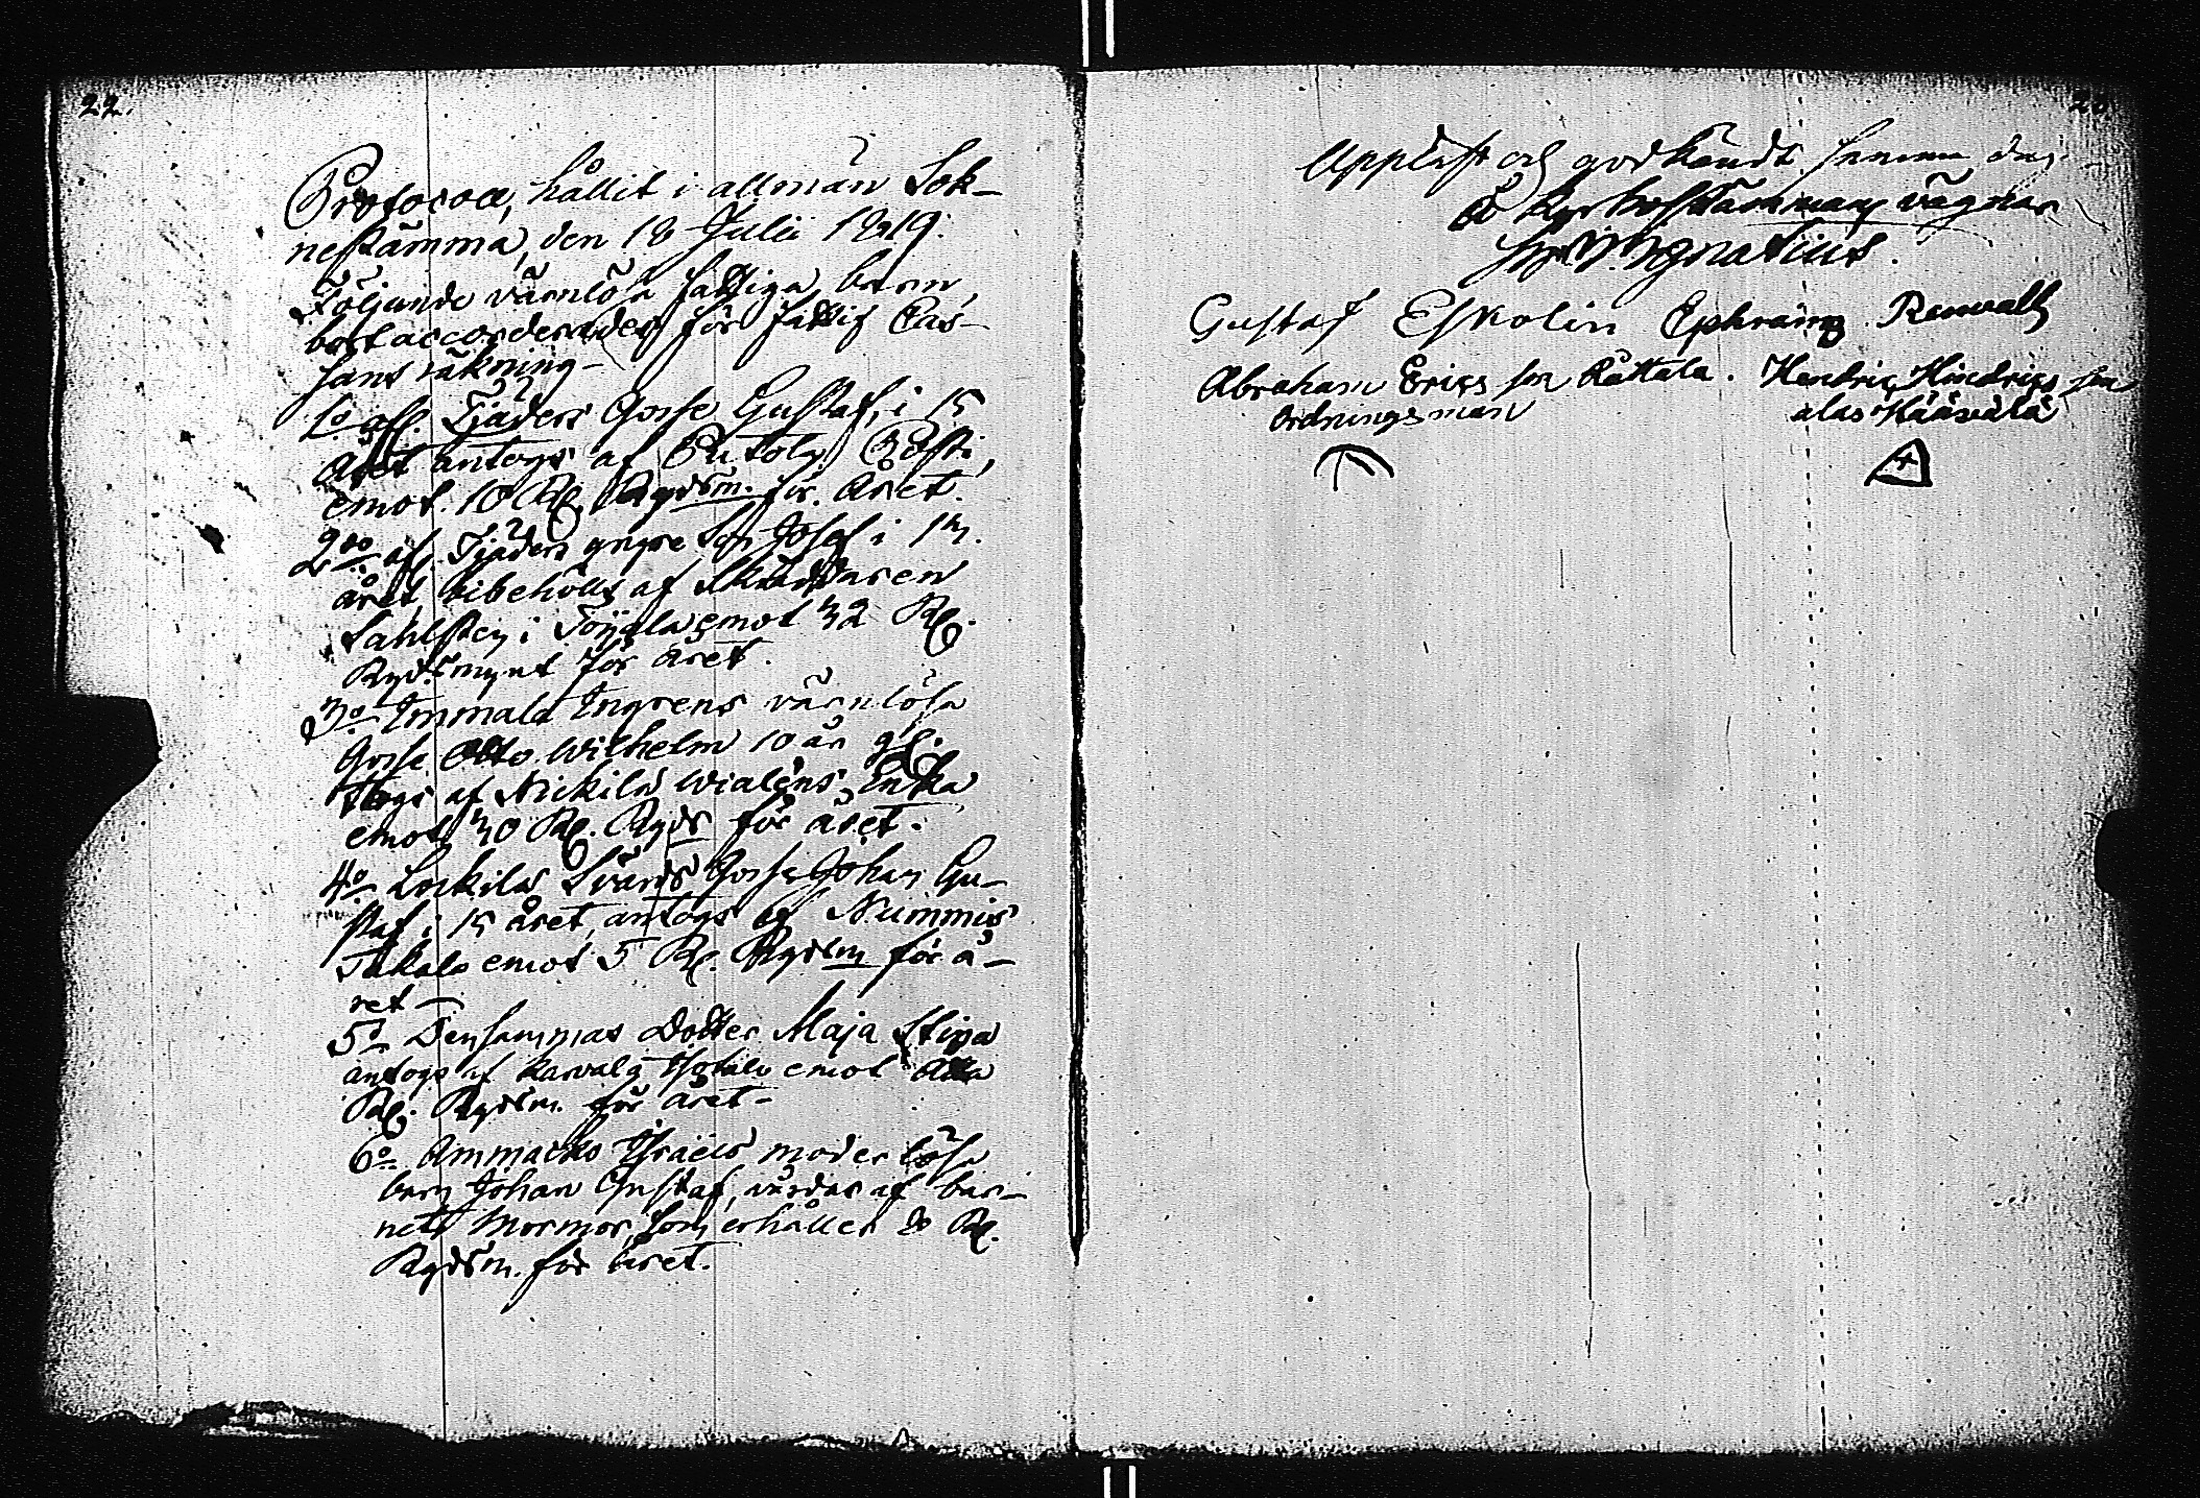 22.
Protocoll, hållit i allmän Sok-
nestämma, den 18 Julii 1819.
Följande värnlösa fattiga barn,
bortaccorderades för Fattig Cas-
sans räkning-
1o afl. Tjäders Gosse Gustaf, i 15
året antogs af Rosti,
emot 10 R. Rgdsm. för Året.
2do afl. Tjäders yngre Son Josef i 13.
året, bibehölls af Skräddaren
Sahlsten i Töijala emot 32 R.
Rgdsmynt för året.
3o Immala Engrens värnlösa
Gosse Otto Wilhelm 10 år gl.
togs af Nickilä Wialéns Enka
emot 30 R. Rgds för året.
4o Lockilas Svärds Gosse Johan Gu-
staf i 15 året, antogs af Nummis
emot 5 R. Rgdsm för å-
ret
5o Densammas Dotter Maja Stina
antogs af emot Åtta
R. Rgdsm. för året-
6o Ammacks Israels moderlösa
barn Johan Gustaf, vårdas af bar-
nets Mormor, som erhåller 8 R.
Rgdsm. för året.
Uppläst och godkändt samma dag.
Å Kyrkostämmans vägnar
Ignatius.
Gustaf Eskolin Ephraim Renvall
Abraham Erics son Rattala. Hendric Hindrics son
ordningsman alas